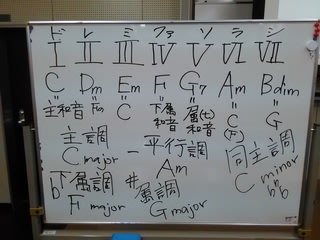 ド レ ミ ファ ソ ラ シ
I II III IV V VI VII
C Dm Em F G7 Am Bdim
主和音 F6 C 下属和音 属(七)和音 C (F) G
主調 平行調 同主調
C major Am C minor
下属調 属調
F major G major